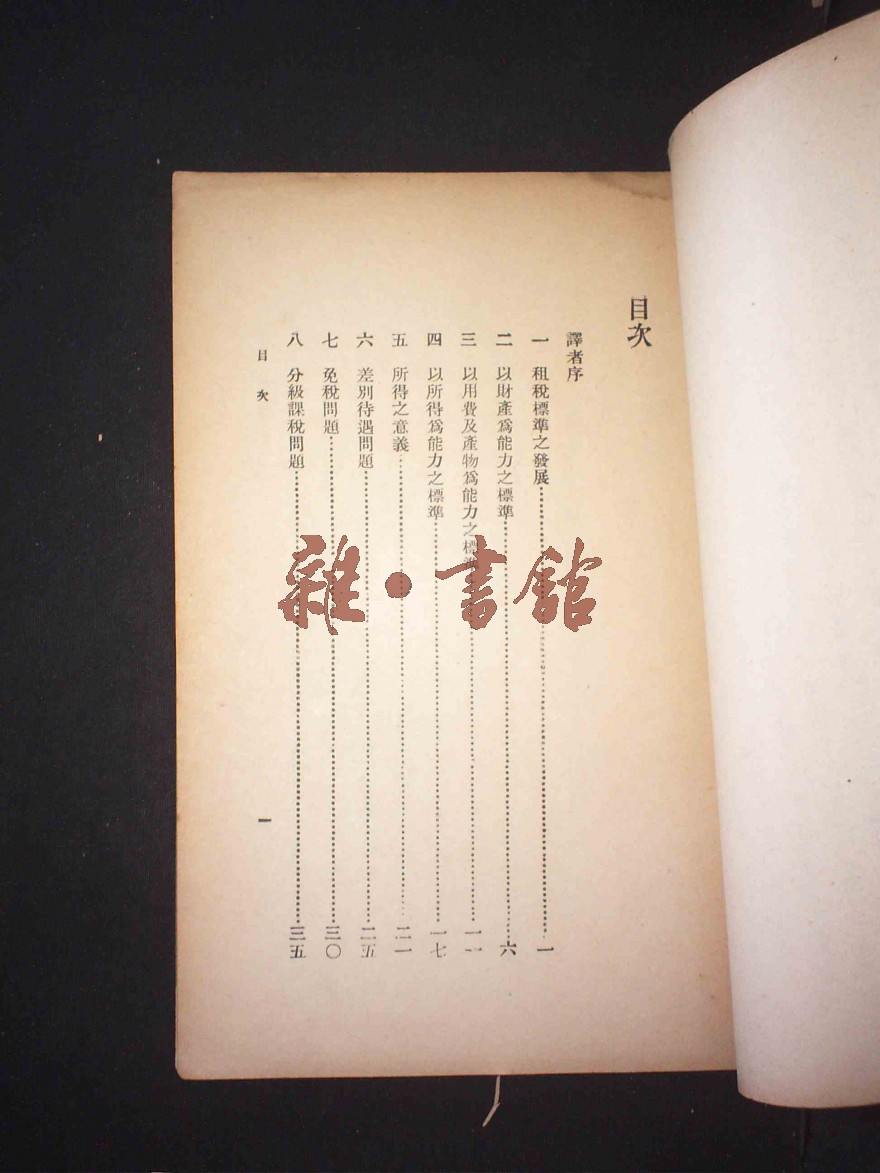 目次
譯者序
一 租稅標準之發展……一
二 以財產爲能力之標準……六
三 以用費及產物爲能力之標準……一一
四 以所得爲能力之標準……一七
五 所得之意義……二一
六 差別待遇問題……二五
七 免稅問題……三〇
八 分級課稅問題……三五
目次
一
雜·書館